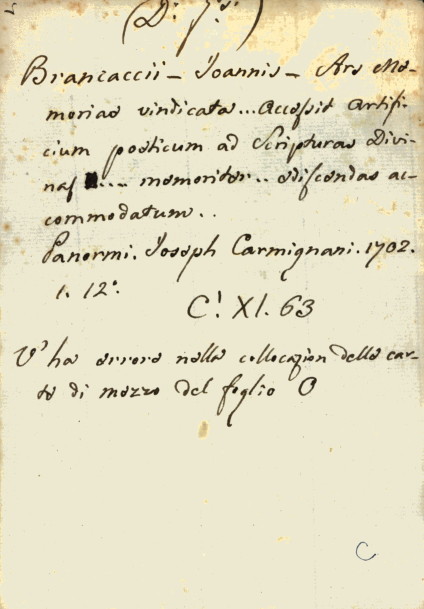 (D. J.s)
Brancaccii - Joannis - Ars Me-
moriae vindicata... Accessit artifi-
cium poeticum ad Scripturas Divi-
nas .... memoriter.. ediscendas ac-
commodatum..
Panormi. Joseph Carmignani. 1702.
1. 12.°
C! XI. 63
V'ha errore nella collocazion delle car-
te di mezzo del foglio O
C